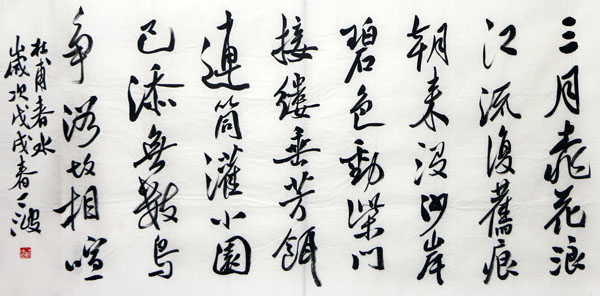 三月桃花浪
江流復舊痕
朝来沒沙岸
碧色動柴門
接縷垂芳餌
連筒灌小園
已添無數鳥
争浴故相喧
杜甫春水
歲次戊戌春